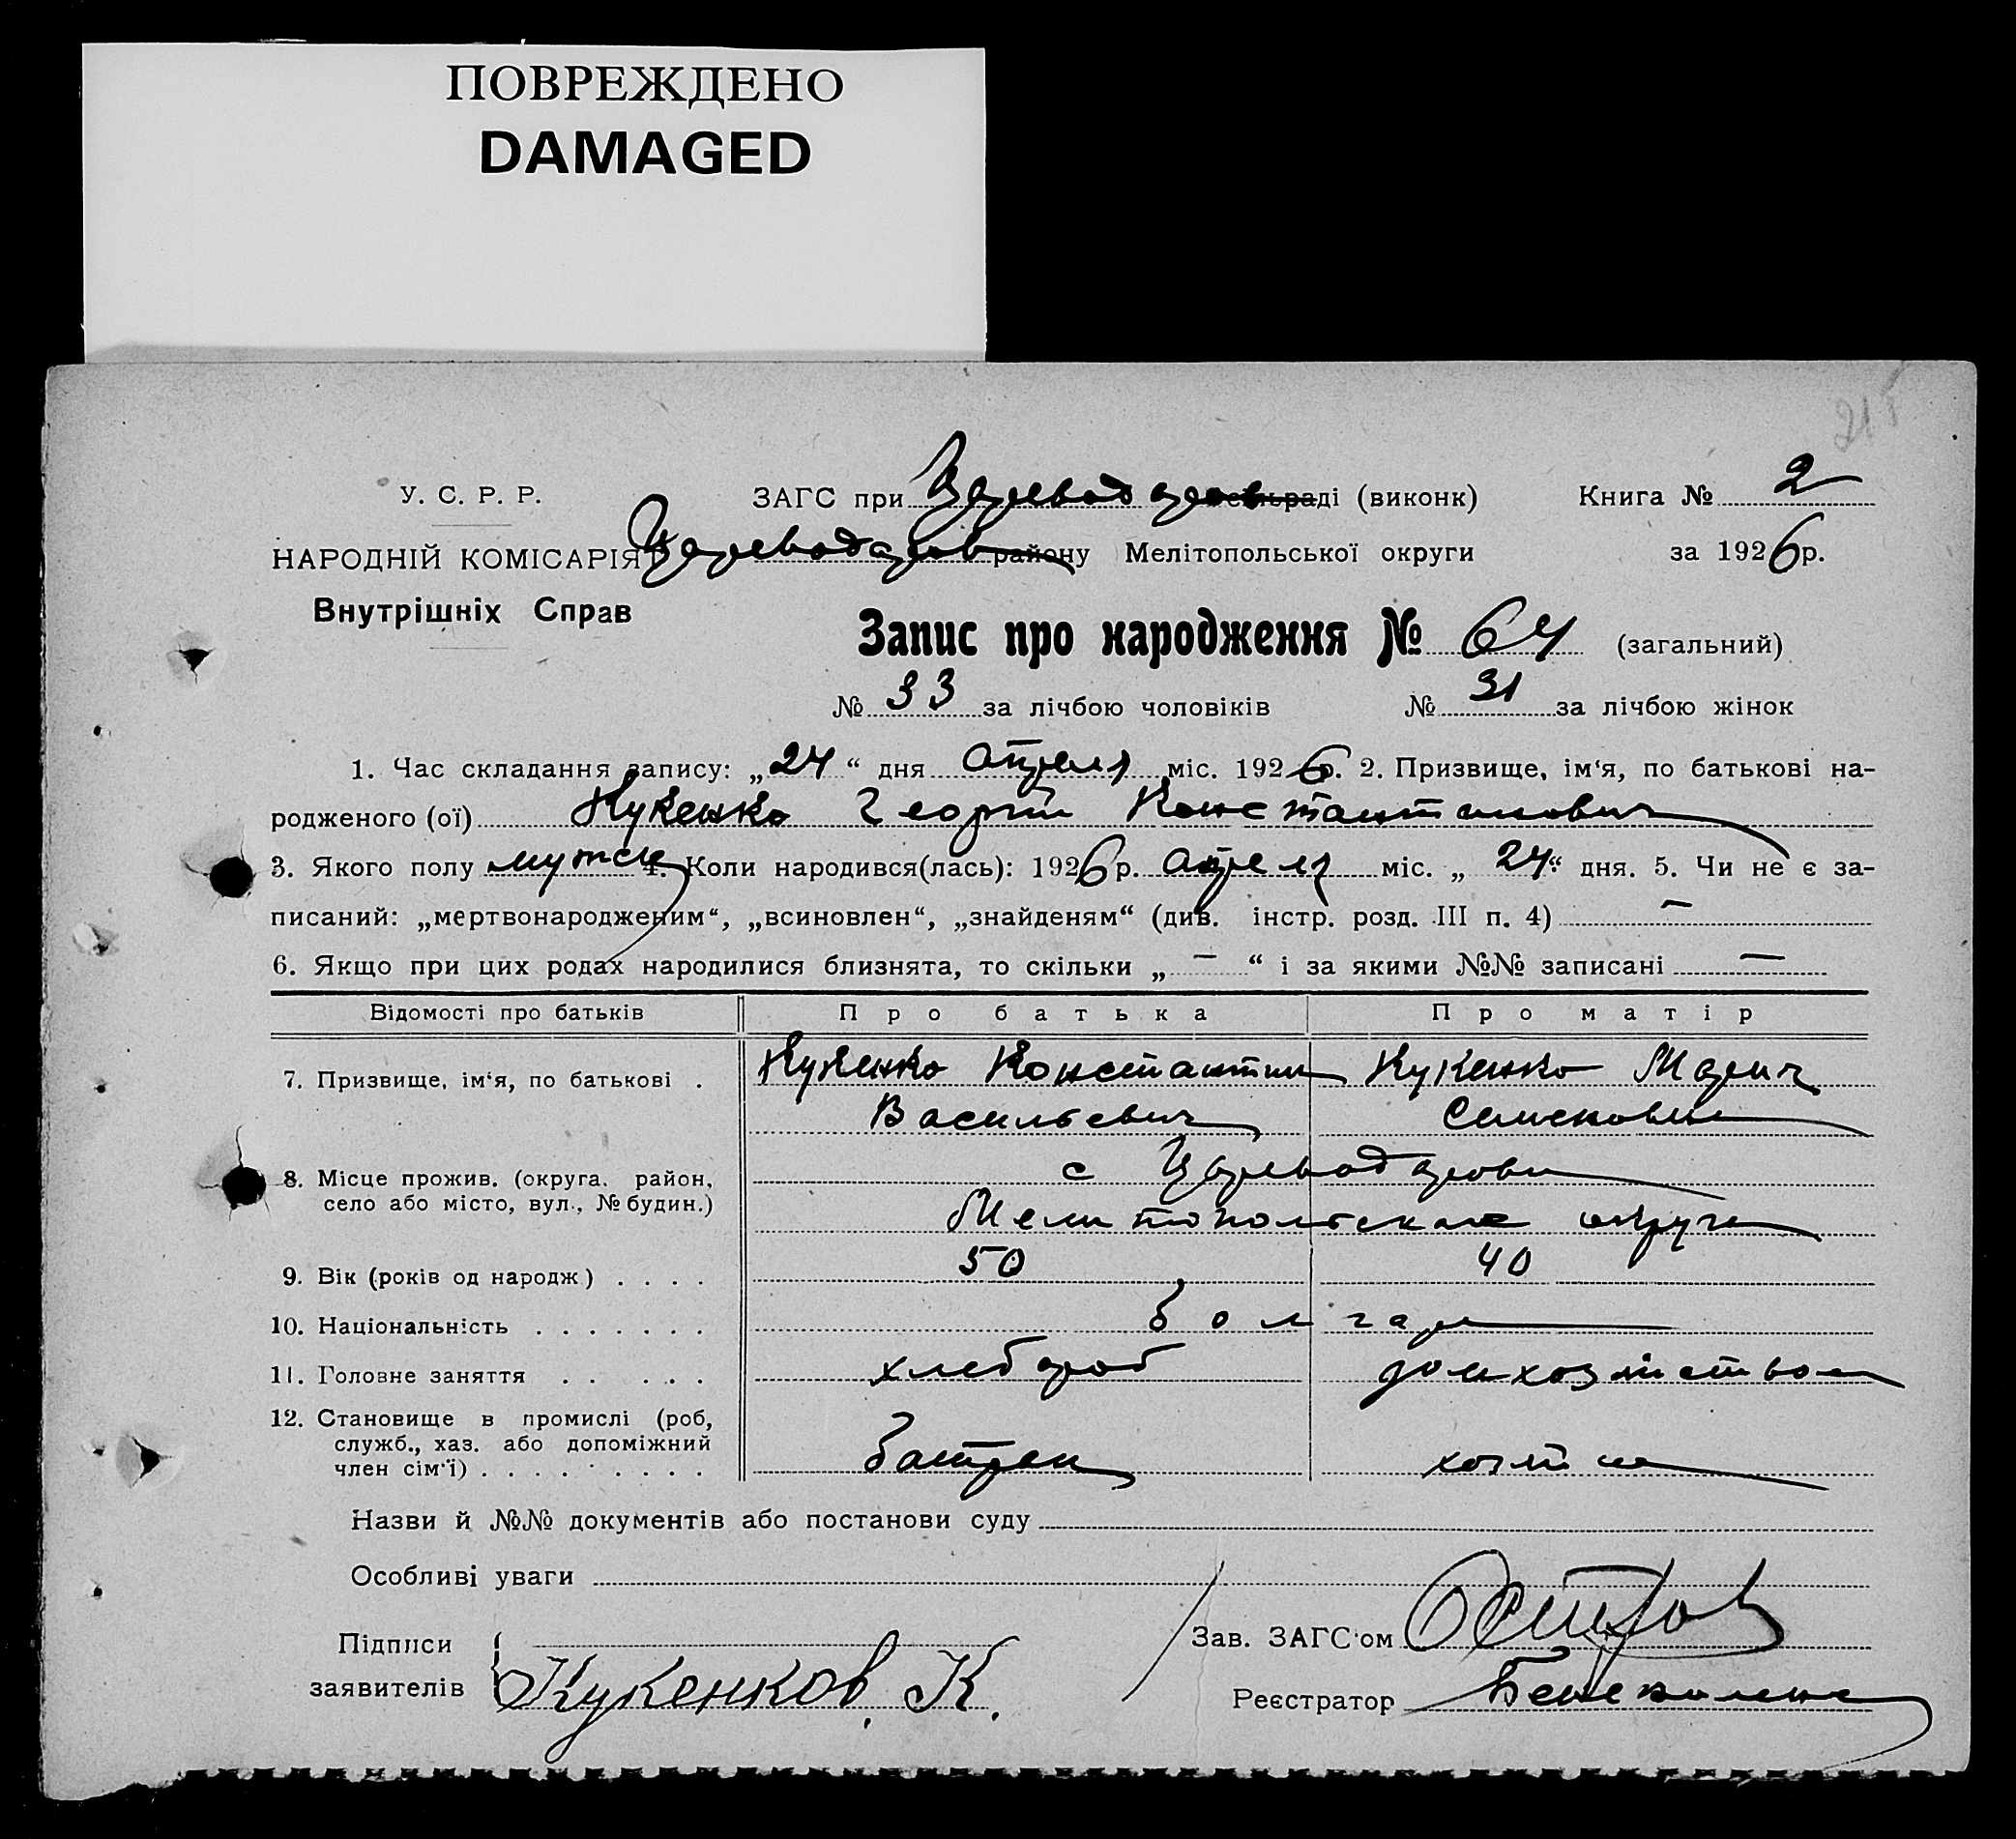 ПОВРЕЖДЕНО
DAMAGED
У. С. Р. Р. ЗАГС при Цареводаров сільраді (виконк) Книга № 2
НАРОДНІЙ КОМІСАРІЯТ Цареводаров району Мелітопольської округи за 1926 р.
Внутрішніх Справ
Запис про народження № 64 (загальний)
№ 33 за лічбою чоловіків № 31 за лічбою жінок
1. Час складання запису: „24“ дня апреля міс. 1926 р. 2. Призвище, ім‘я, по батькові на-
родженого (ої) Кукенко Георгий Константинович
3. Якого полу мужск 4. Коли народився(лась): 1926 р. апреля міс. „24“ дня. 5. Чи не є за-
писаний: „мертвонародженим“, „всиновлен“, „знайденям“ (див. інстр. розд. III п. 4) —
6. Якщо при цих родах народилися близнята, то скільки „ — “ і за якими №№ записані —
Відомості про батьків Про батька Про матір
7. Призвище, ім‘я, по батькові . Кукенко Константин Кукенко Мария
Васильевич Семеновна
8. Місце прожив. (округа, район, с Цареводаровка
село або місто, вул., № будин.)
Мелитопольская округа
9. Вік (років од народж) . . . . 50 40
10. Національність . . . . . . . болгаре
11. Головне заняття . . . . . хлебороб домхозяйством
12. Становище в промислі (роб,
служб., хаз. або допоміжний
член сім‘ї) . . . . . . . . . хозяйка
Назви й №№ документів або постанови суду
Особливі уваги
Підписи Зав. ЗАГС‘ом
заявителів Кукенков. К. Реєстратор